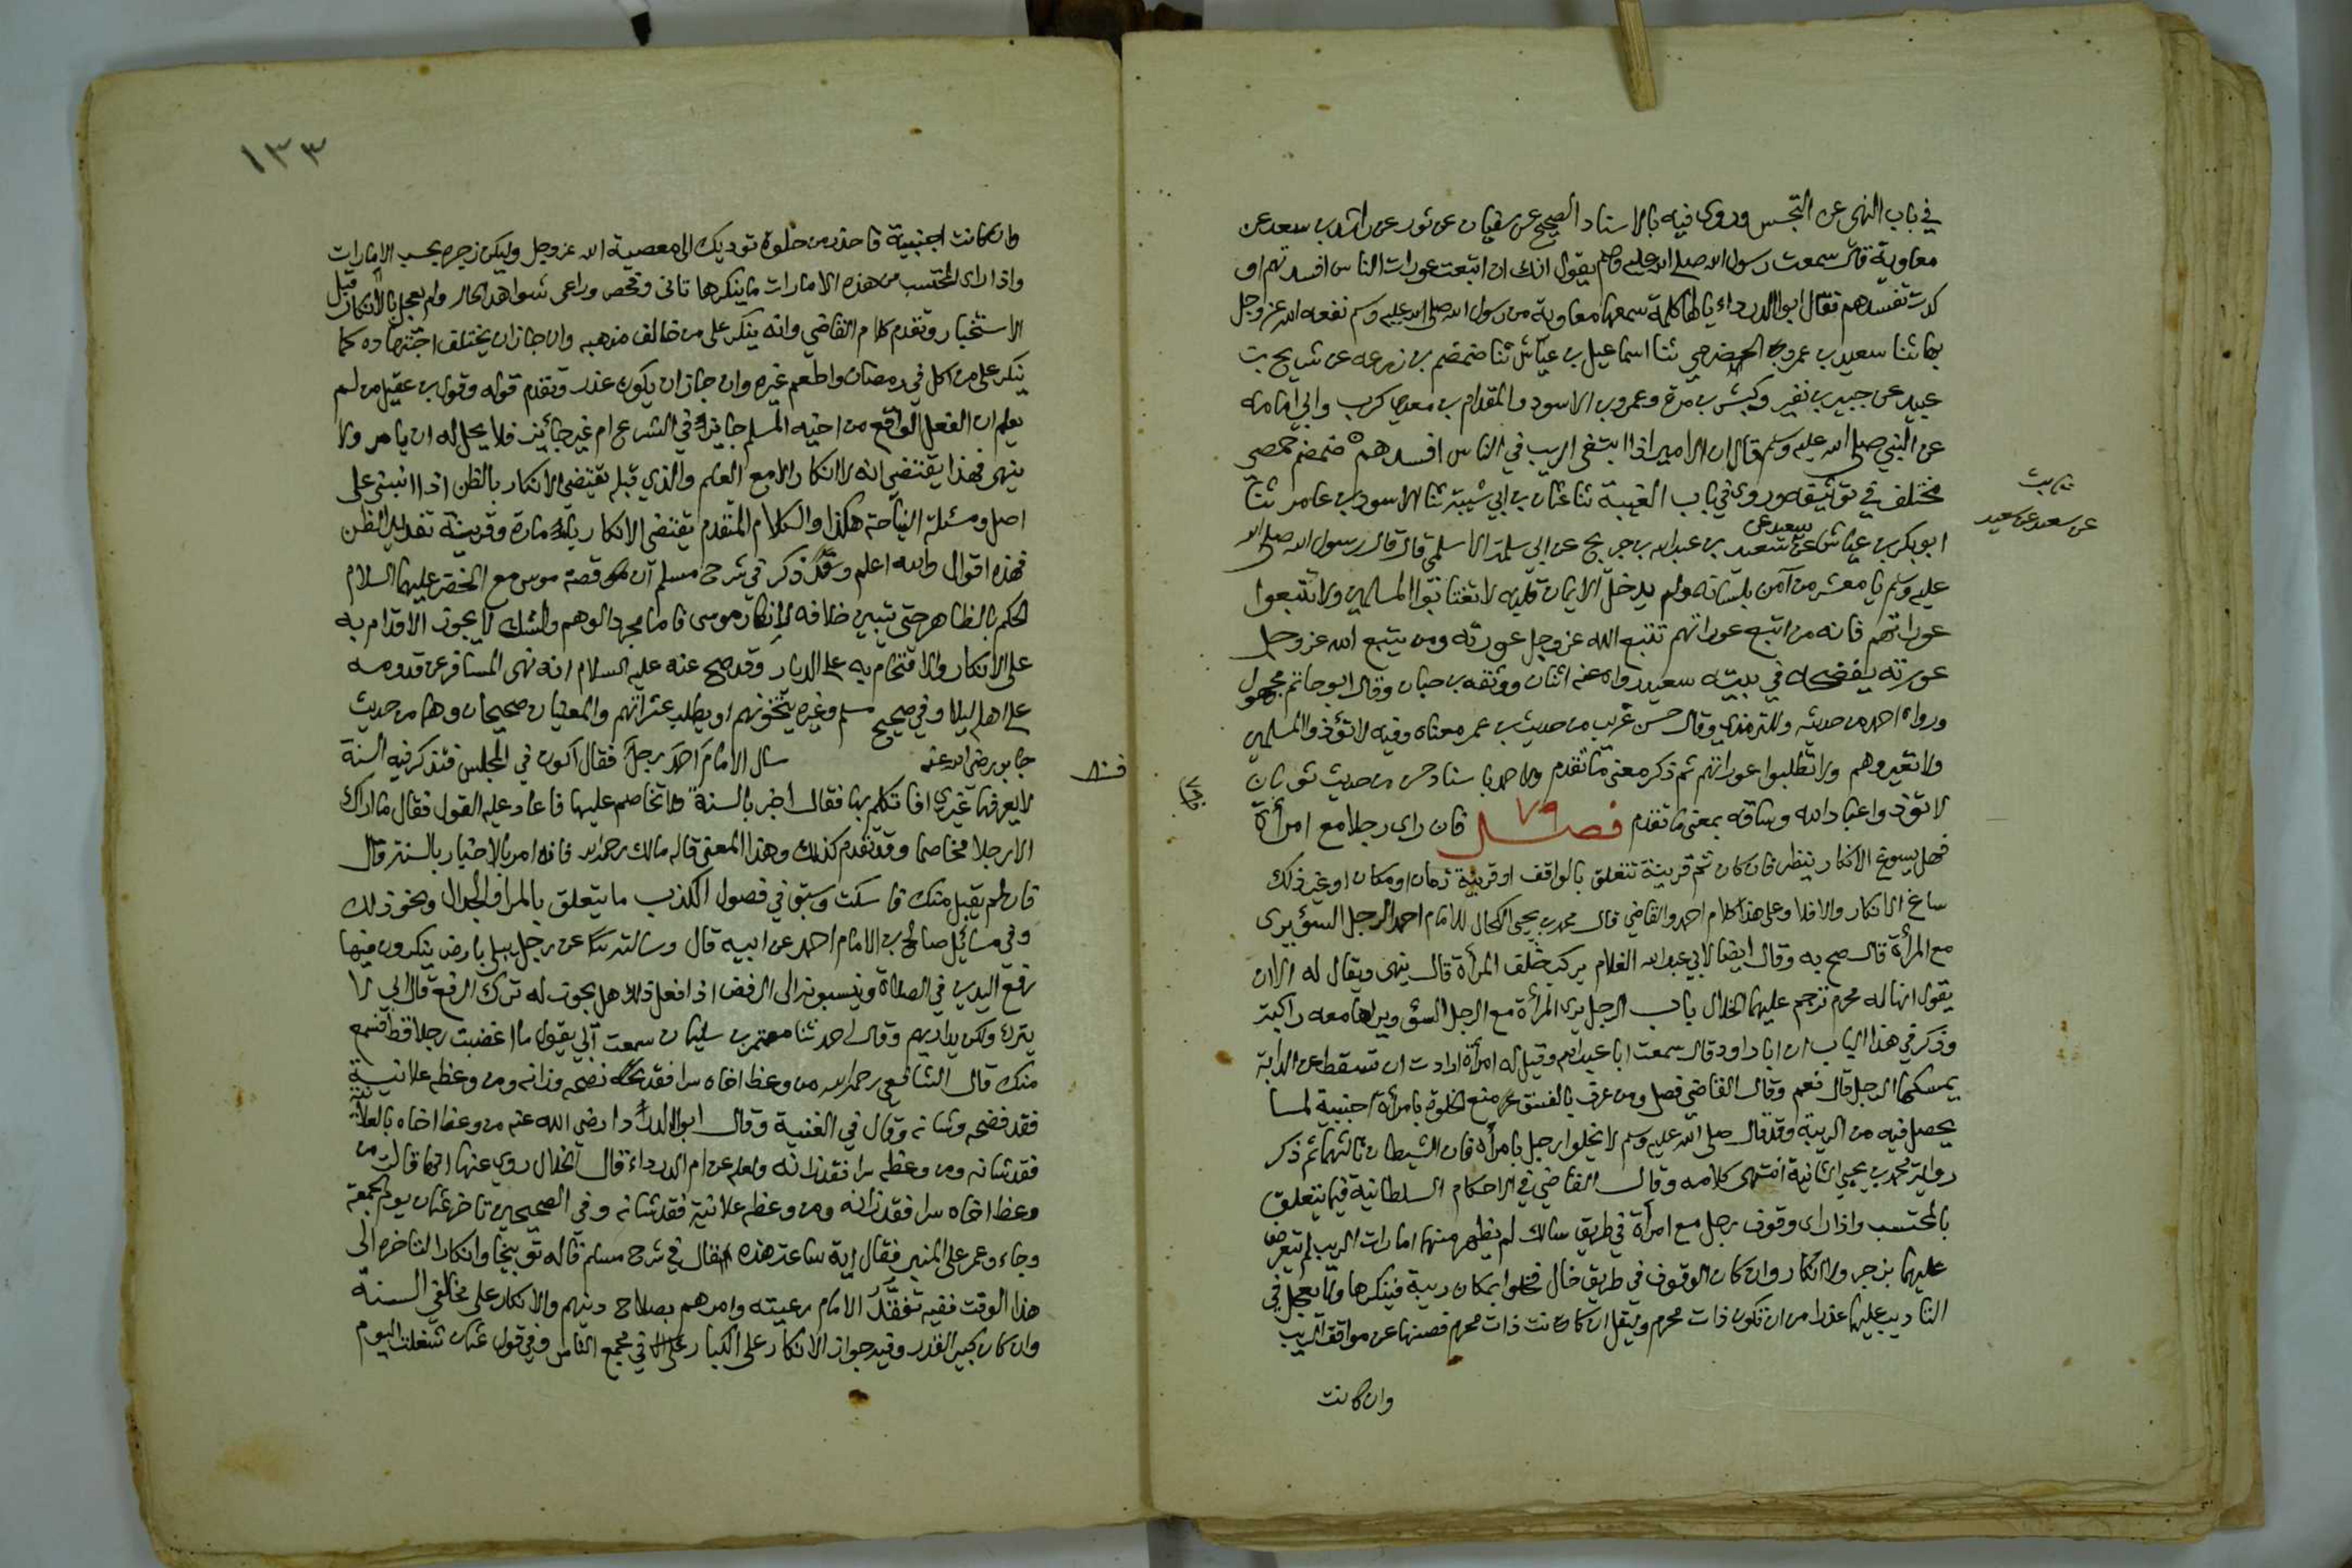 في باب النهى عن التجسس وروى فيه بالاسناد الصحيح عن سفيان عن ثور عن راشد بن سعد عن
معاوية قال سمعت رسول الله صلى الله عليه وسلم يقول انك ان اتبعت عورات الناس افسدتهم او
كدت تفسدهم فقال ابو الدرداء يالها كلمة سمعها معاوية من رسول الله صلى الله عليه وسلم نفعه الله عز وجل
بها ثنا سعيد بن عمرو الحضرمي ثنا اسماعيل بن عياش ثنا ضمضم بن زرعه عن شريح بن
عبيد عن جبير بن نفير وكثير بن مرة وعمرو بن الاسود والمقدام بن معدي كرب وابي امامه
عن النبي صلى الله عليه وسلم قال ان الامير اذا ابتغى الريب في الناس افسدهم ضمضم حمصي
مختلف في توثيقه وروى في باب الغيبة ثنا عثمان بن ابي شيبة ثنا الاسود بن عامر ثنا
ابو بكر بن عياش عن سعيد بن عبد الله بن جريج عن ابي سلمة الاسلمي قال قال رسول الله صلى الله
سعيد عن
عن سعيد عن سعيد
عليه وسلم يا معشر من آمن بلسانه ولم يدخل الايمان قلبه لا تغتابوا المسلمين ولا تتبعوا
عوراتهم فانه من اتبع عوراتهم تتبع الله عز وجل عورته ومن يتبع الله عز وجل
عورته يفضحه في بيته سعيد رواه عنه اثنان ووثقه بن حبان وقال ابو حاتم مجهول
ورواه احمد من حديثه وللترمذي وقال حسن غريب من حديث بن عمر معناه وفيه لا تؤذوا المسلمين
ولا تعيروهم ولا تطلبوا عوراتهم ثم ذكر معنى ما تقدم ولاحمد باسناد حسن من حديث ثوبان
لا تؤذوا عباد الله وساقه بمعنى ما تقدم فصل ٧٩ فان راى رجلا مع امرأة
فهل يسوغ الانكار ينظر فان كان ثم قرينة تتعلق بالواقف او قرينة زمان او مكان او غير ذلك
ساغ الانكار والا فلا وعلى هذا كلام احمد والقاضي قال محمد بن يحيى الكحال للامام احمد الرجل السوء يرى
مع المرأة قال صح به وقال ايضا لابي عبد الله الغلام يركب خلف المرأة قال ينهى ويقال له الا ان
يقول انها له محرم ترجم عليهما الخلال باب الرجل يرى المرأة مع الرجل السوء ويراها معه راكبة
وذكر في هذا الباب ان ابا داود قال سمعت ابا عبد الله وقيل له امرأة ارادت ان تسقط عن الدابة
يمسكها الرجل قال نعم وقال القاضي فصل ومن عرف بالفسق منع الخلوة بامرأة اجنبية لما
يحصل فيه من الريبة وقد قال صلى الله عليه وسلم لا يخلوا رجل بامرأة فان الشيطان ثالثهما ثم ذكر
رواية محمد بن يحيى الثانية انتهى كلامه وقال القاضي في الاحكام السلطانية فيما يتعلق
بالمحتسب واذا راى وقوف رجل مع امرأة في طريق سالك لم يظهر منهما امارات الريب لم يتعرض
عليهما بزجر ولا انكار وان كان الوقوف في طريق خال فخلوا بمكان ريبة فينكرها ولا يعجل في
التاديب عليهما حذرا من ان تكون ذات محرم وليقل ان كانت ذات محرم فصنها عن مواقف الريب
وان كانت
١٣٣
وان كانت اجنبية فاحذر من خلوة توديك الى معصية الله عز وجل وليكن زجره بحسب الامارات
واذا راى المحتسب من هذه الامارات ما ينكرها تانى وفحص وراعى شواهد الحال ولم يعجل بالانكار قبل
الاستخبار وتقدم كلام القاضي وانه ينكر على من خالف مذهبه وان جاز ان يختلف اجتهاده كما
ينكر على من اكل في رمضان واطعم غيره وان جاز ان يكون عذر وتقدم قوله وقول بن عقيل من لم
يعلم ان الفعل الواقع من اخيه المسلم جايز في الشرع ام غير جائز فلا يحل له ان يامر ولا
ينهى فهذا يقتضي انه لا انكار الا مع العلم والذي قبله يقتضي الانكار بالظن اذا انبنى على
اصل ومسئلة النياحة هكذا والكلام المتقدم يقتضى الانكار بامارة وقرينة تفيد الظن
فهذه اقوال والله اعلم وقد ذكر في شرح مسلم ان قصة موسى مع الخضر عليهما السلام
الحكم بالظاهر حتى تبين خلافه لانكار موسى فاما مجرد الوهم والشك لا يجوز الاقدام به
على الانكار والاقتحام به على الديار وقد صح عنه عليه السلام انه نهى المسافر عن قدومه
على اهله ليلا وفي صحيح مسلم وغيره يتخونهم او يطلب عثراتهم والمعنيان صحيحان وهما من حديث
جابر رضي الله عنه سال الامام احمد رجل فقال اكون في المجلس فتذكر فيه السنة
لا يعرفها غيري افاتكلم بها فقال اخبر بالسنة ولا تخاصم عليها فاعاد عليه القول فقال ما اراك
الا رجلا مخاصما وقد تقدم كذلك وهذا المعنى قاله مالك رحمه الله فانه امر بالاخبار بالسنة قال
فان لم يقبل منك فاسكت وسبق في فصول الكذب ما يتعلق بالمرا والجدال ونحو ذلك
وفي مسائل صالح بن الامام احمد عن ابيه قال وسالته عن رجل يبلى بارض ينكرون فيها
رفع اليدين في الصلاة وينسبونه الى الرفض اذا فعل ذلك هل يجوز له ترك الرفع قال ابي لا
يترك ولكن يداريهم وقال احمد ثنا معتمر بن سليمان سمعت ابي يقول ما اغضبت رجلا قط فسمع
منك قال الشافعي رحمه الله من وعظ اخاه سرا فقد نصحه وزانه ومن وعظه علانية
فقد فضحه وشانه وقال في الغنية وقال ابو الدرداء رضى الله عنه من وعظ اخاه بالعلانية
فقد شانه ومن وعظه سرا فقد زانه ولعله عن ام الدرداء قال الخلال روي عنها انها قالت من
وعظ اخاه سرا فقد زانه ومن وعظه علانية فقد شانه وفي الصحيحين تاخر عثمان يوم الجمعة
وجاء وعمر على المنبر فقال اية ساعة هذه قال في شرح مسلم قاله توبيخا وانكارا لتاخره الى
هذا الوقت ففيه تفقد الامام رعيته وامرهم بصلاح دينهم والانكار على مخالفي السنة
وان كان كبير القدر وفيه جواز الانكار على الكبار في مجمع الناس وفي قول عثمان شغلت اليوم